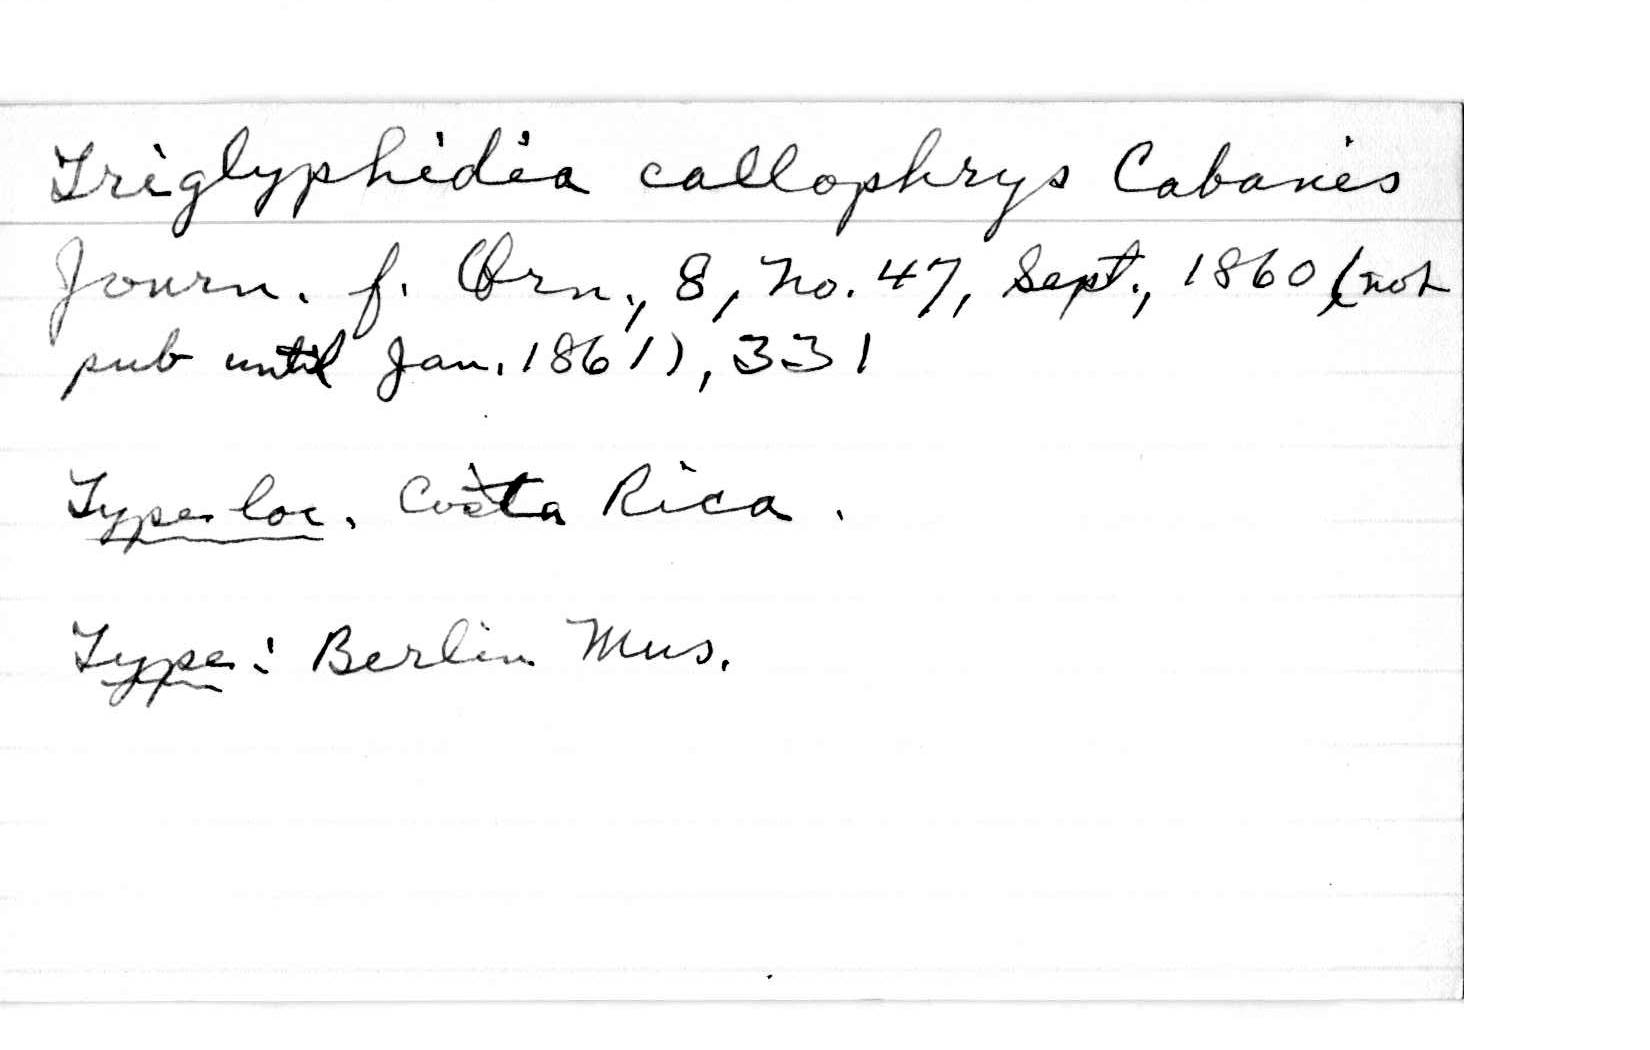 Triglyphidia callophrys Cabanis
Journ. f. Orn., 8, No. 47, Sept., 1860 (not
pub until Jan. 1861), 331
Type loc. Costa Rica.
Type: Berlin Mus.